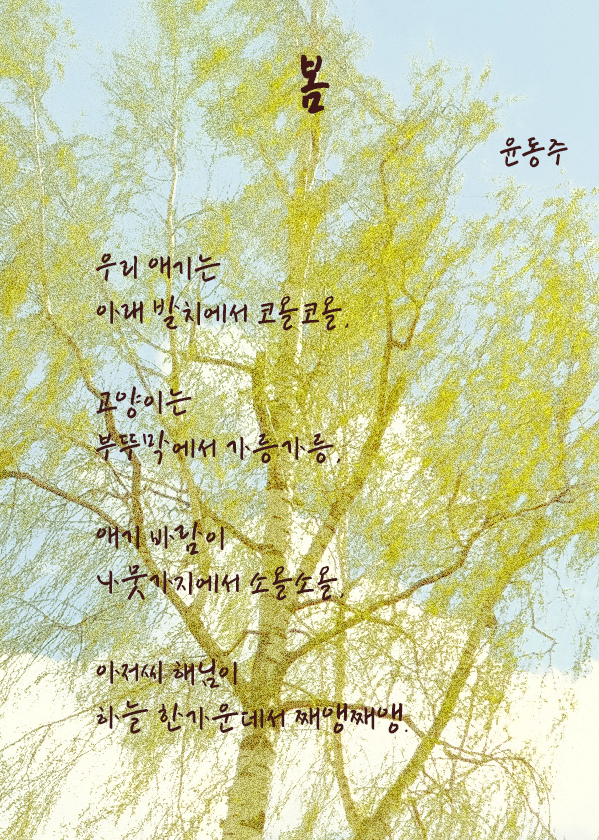 봄
윤동주
우리 애기는
아래 발치에서 코올코올,
고양이는
부뚜막에서 가릉가릉,
애기 바람이
나뭇가지에서 소올소올,
아저씨 해님이
하늘 한가운데서 째앵째앵.